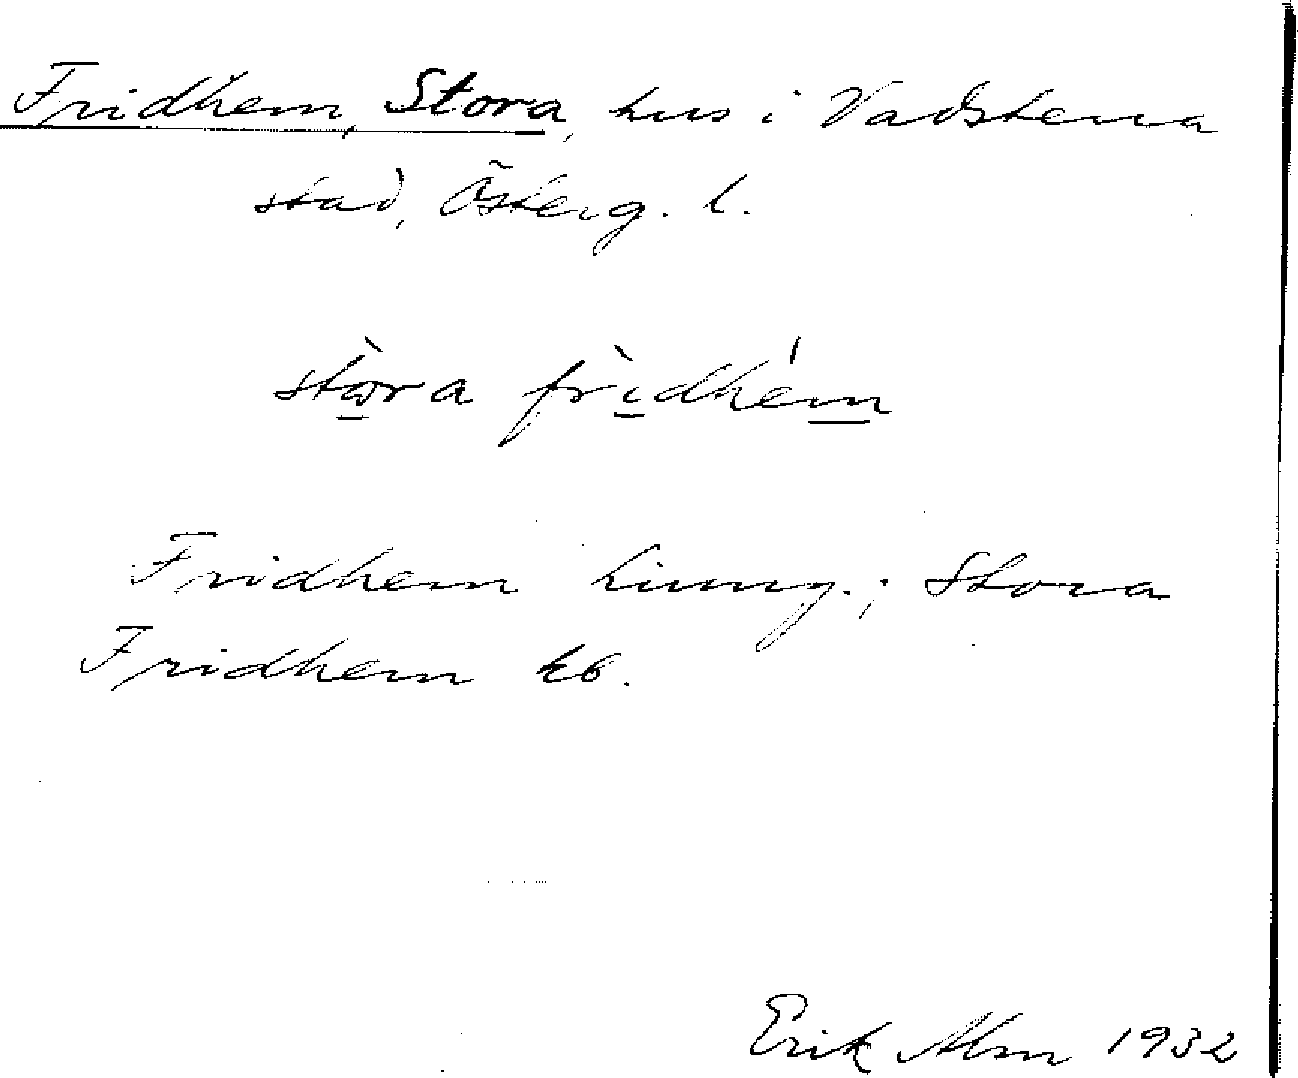 Fridhem, Stora, hus i Vadstena
stad, Österg. l.
stωra fridhem
Fridhem Ljung.; Stora
Fridhem kb.
Erik Alm 1932